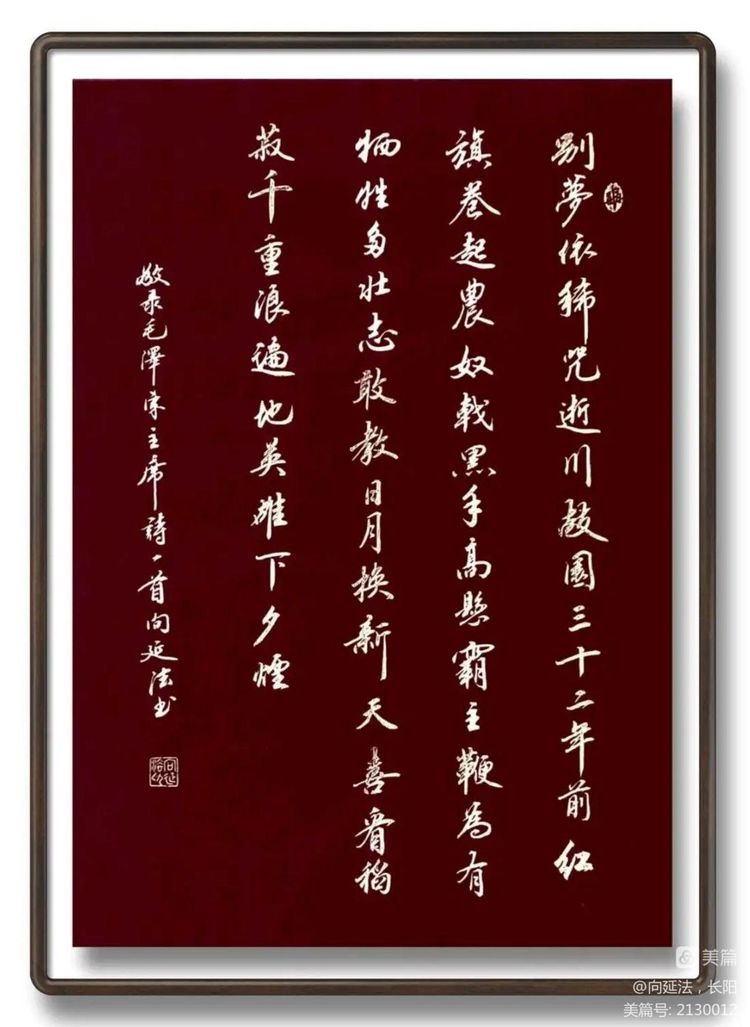 別夢依稀咒逝川故園三十二年前紅
旗卷起農奴戟黑手高懸霸主鞭為有
牺牲多壮志敢教日月換新天喜看稻
菽千重浪遍地英雄下夕煙
敬录毛澤东主席詩一首向延法书
向延法印
美篇
@向延法，长阳
美篇号: 2130012